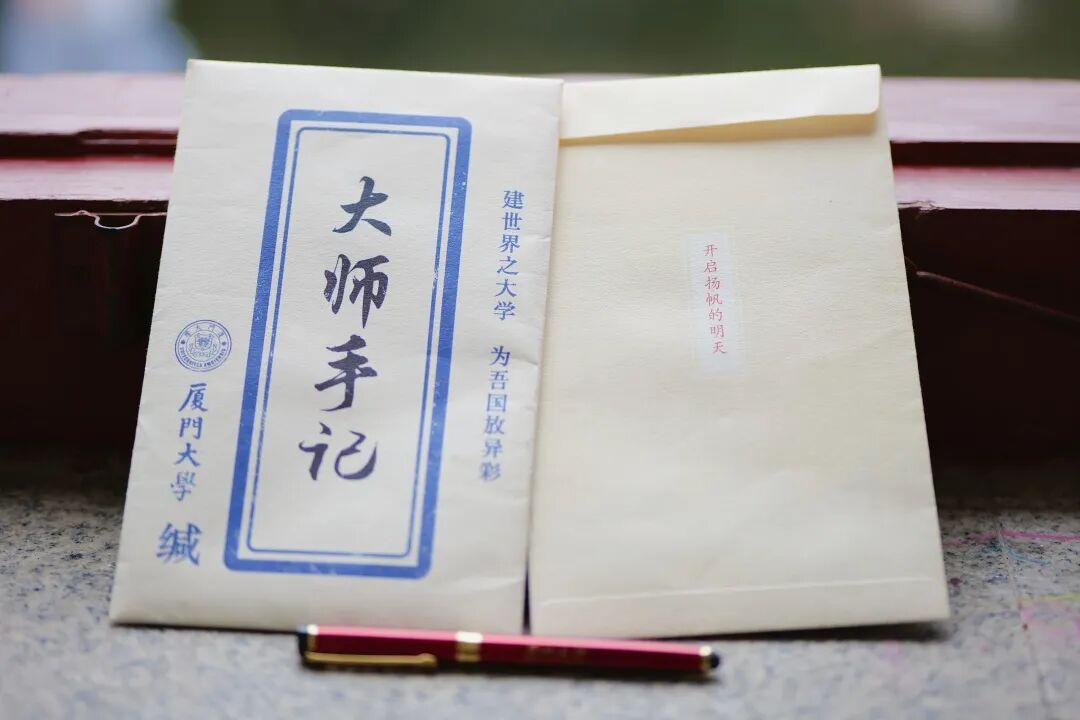 建世界之大学 为吾国放异彩
大师手记
厦門大學 缄
开启扬帆的明天